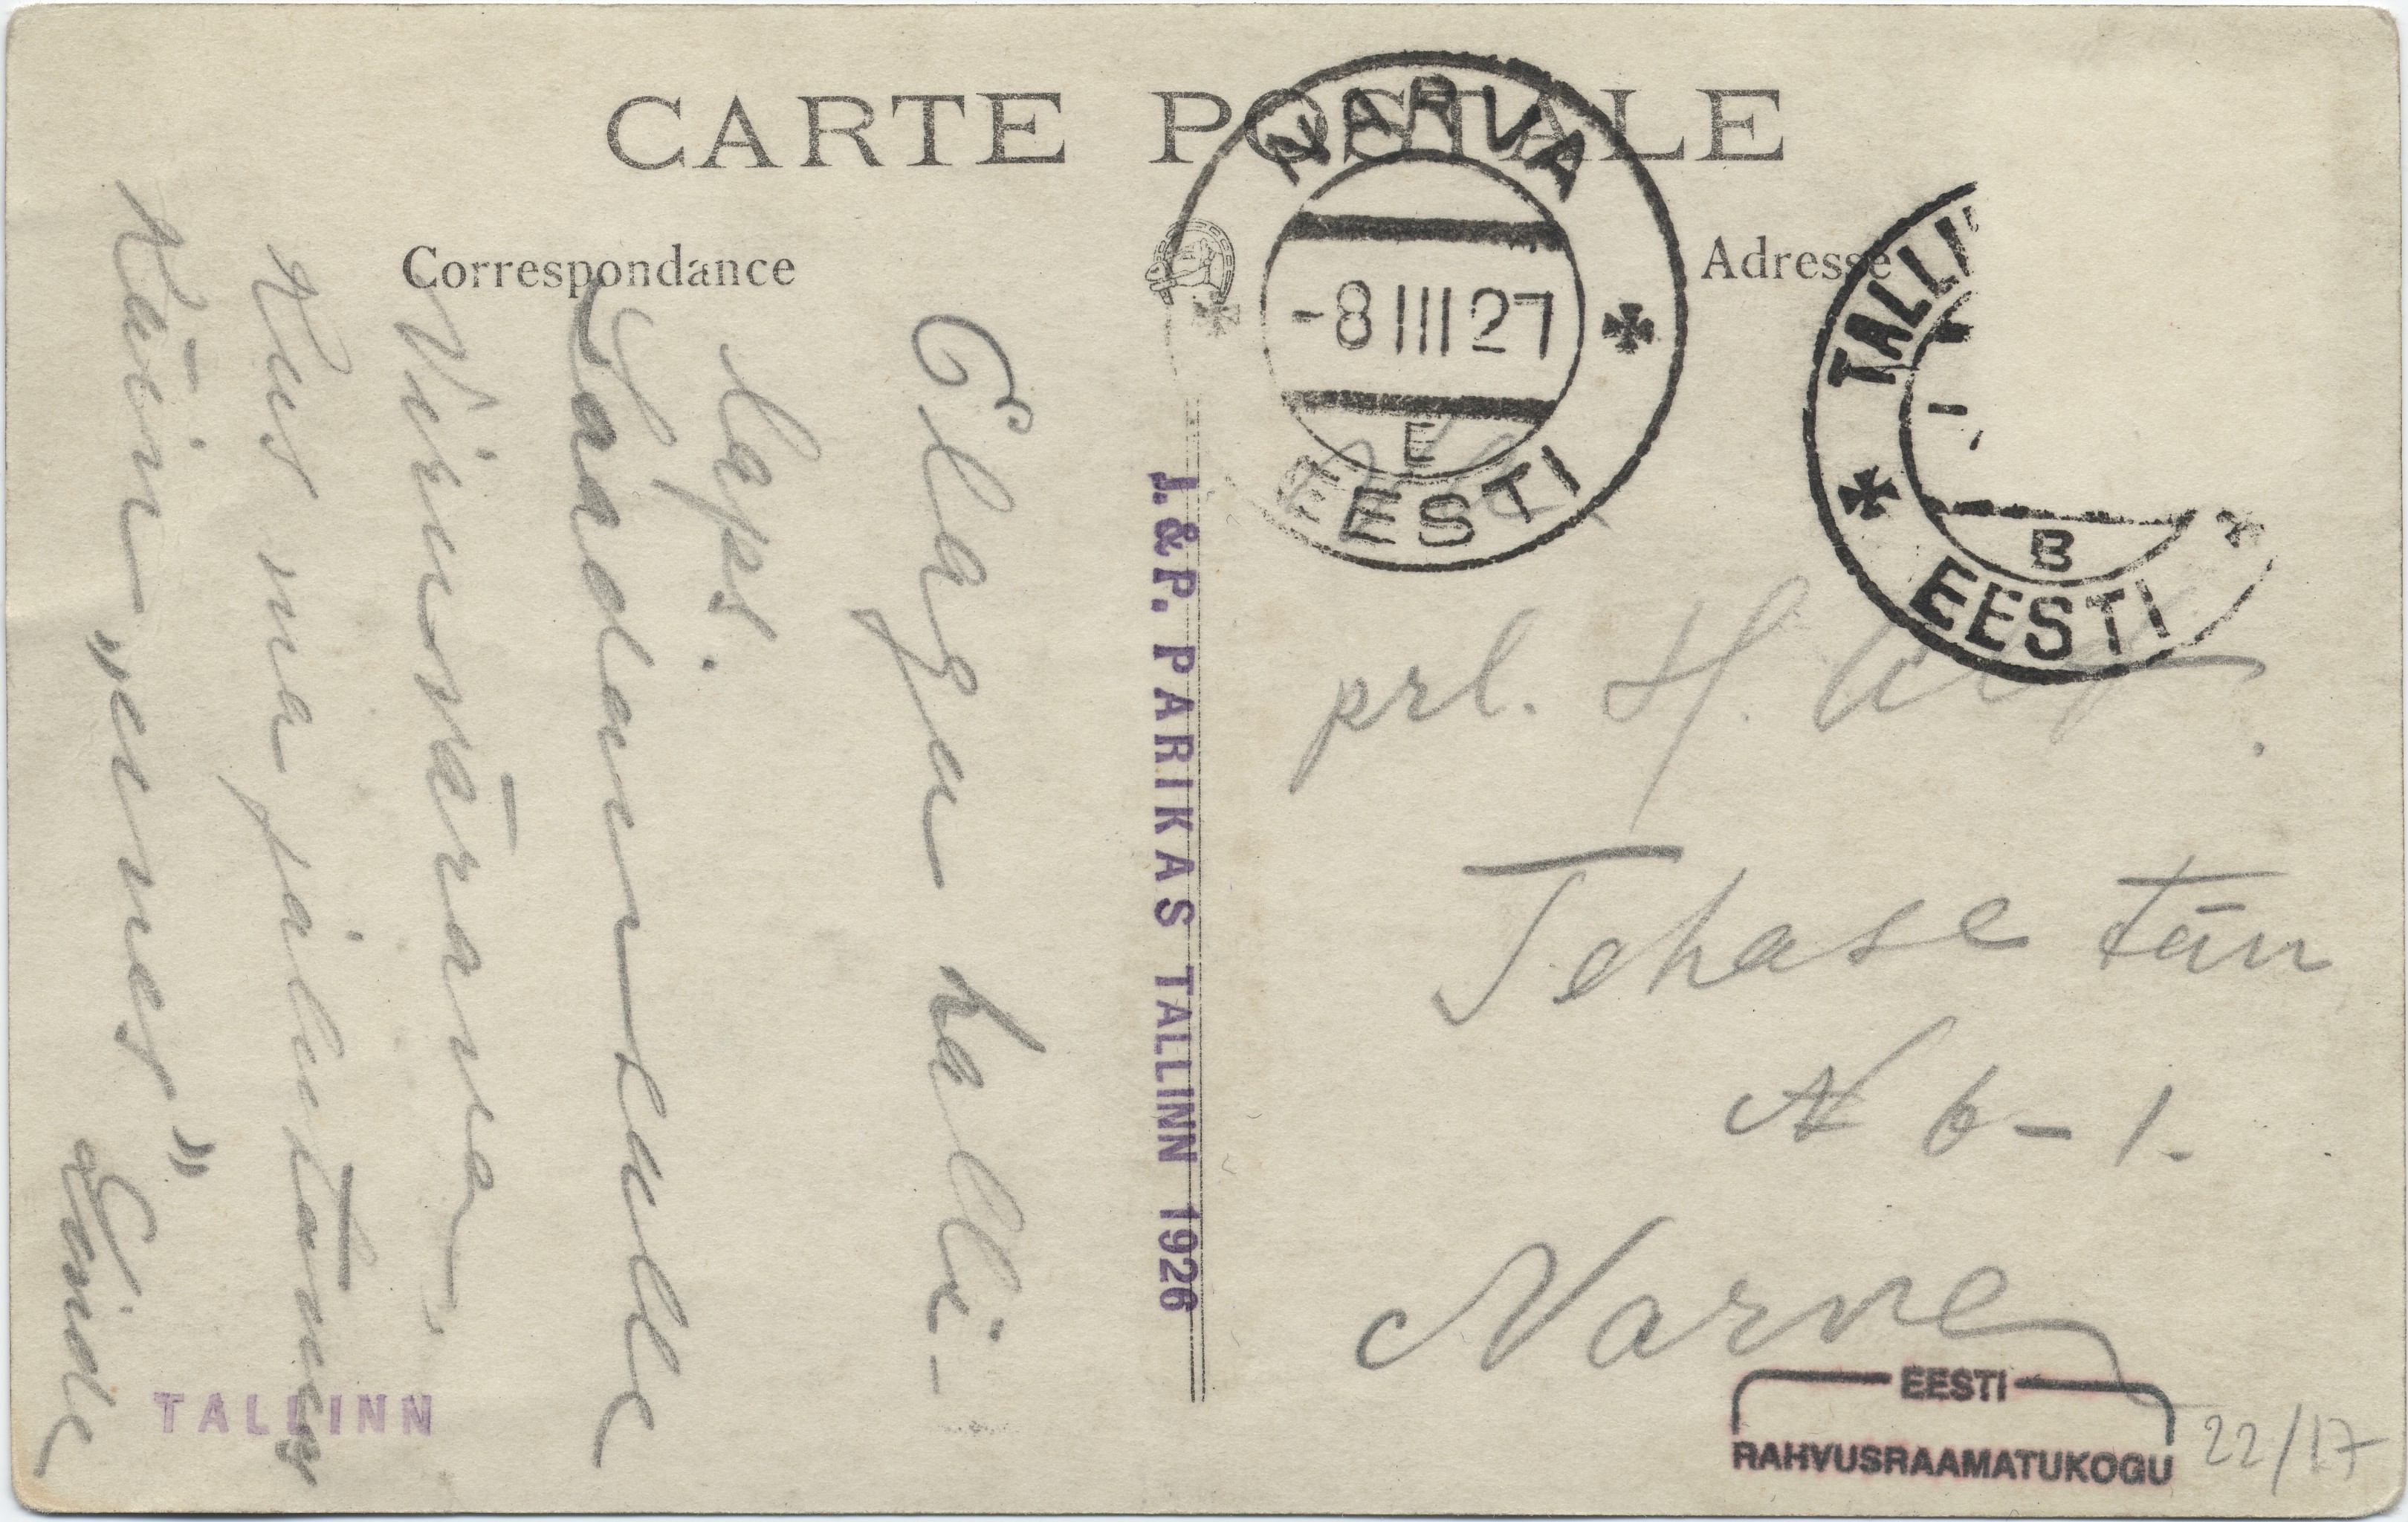 CARTE POSTALE
Correspondance
Adresse
NARVA
-8 III 27
E
EESTI
TALLI
B
EESTI
J. & P. PARIKAS TALLINN 1926
Olagu kalli-
laps.
Saadan sulle
Viruvärava,
kus ma jalutamas
käin „unes”
Linde
prl. H.
Tehase tän
N 6-1.
Narve
TALLINN
EESTI
RAHVUSRAAMATUKOGU
22/17